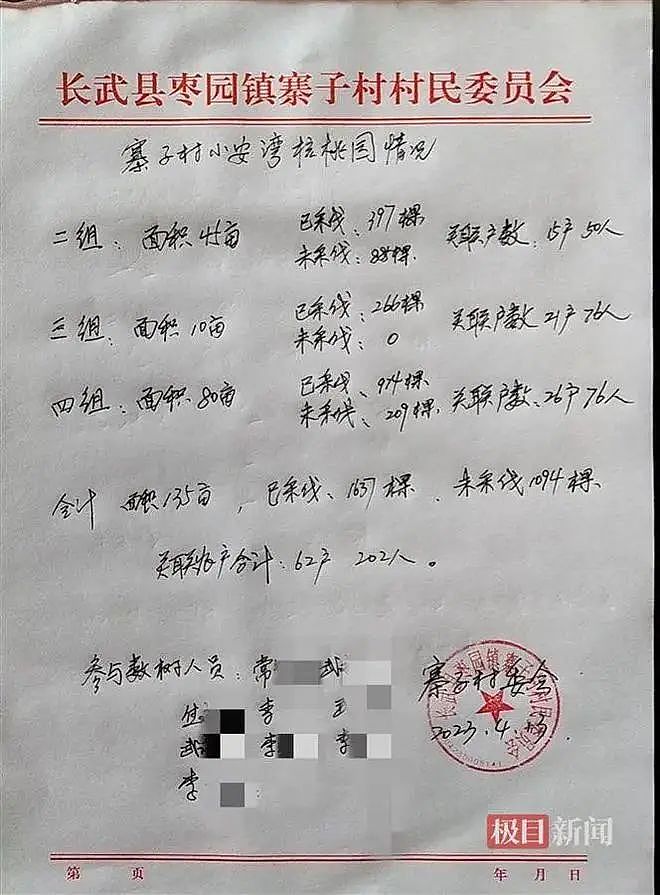 长武县枣园镇寨子村村民委员会
寨子村小安湾核桃园情况
二组: 面积45亩 已采伐: 397棵 关联户数: 15户 50人
未采伐: 885棵
三组: 面积10亩 已采伐: 266棵 关联户数 21户 76人
未采伐: 0
四组: 面积80亩 已采伐: 974棵 关联户数: 26户 76人
未采伐: 209棵
合计 面积135亩, 已采伐: 1637棵. 未采伐1094棵
关联农户合计: 62户 202人。
参与数树人员: 常 武
李 王
武 李 李
李
寨子村委会
2023.4.
极目新闻
第 页 年 月 日